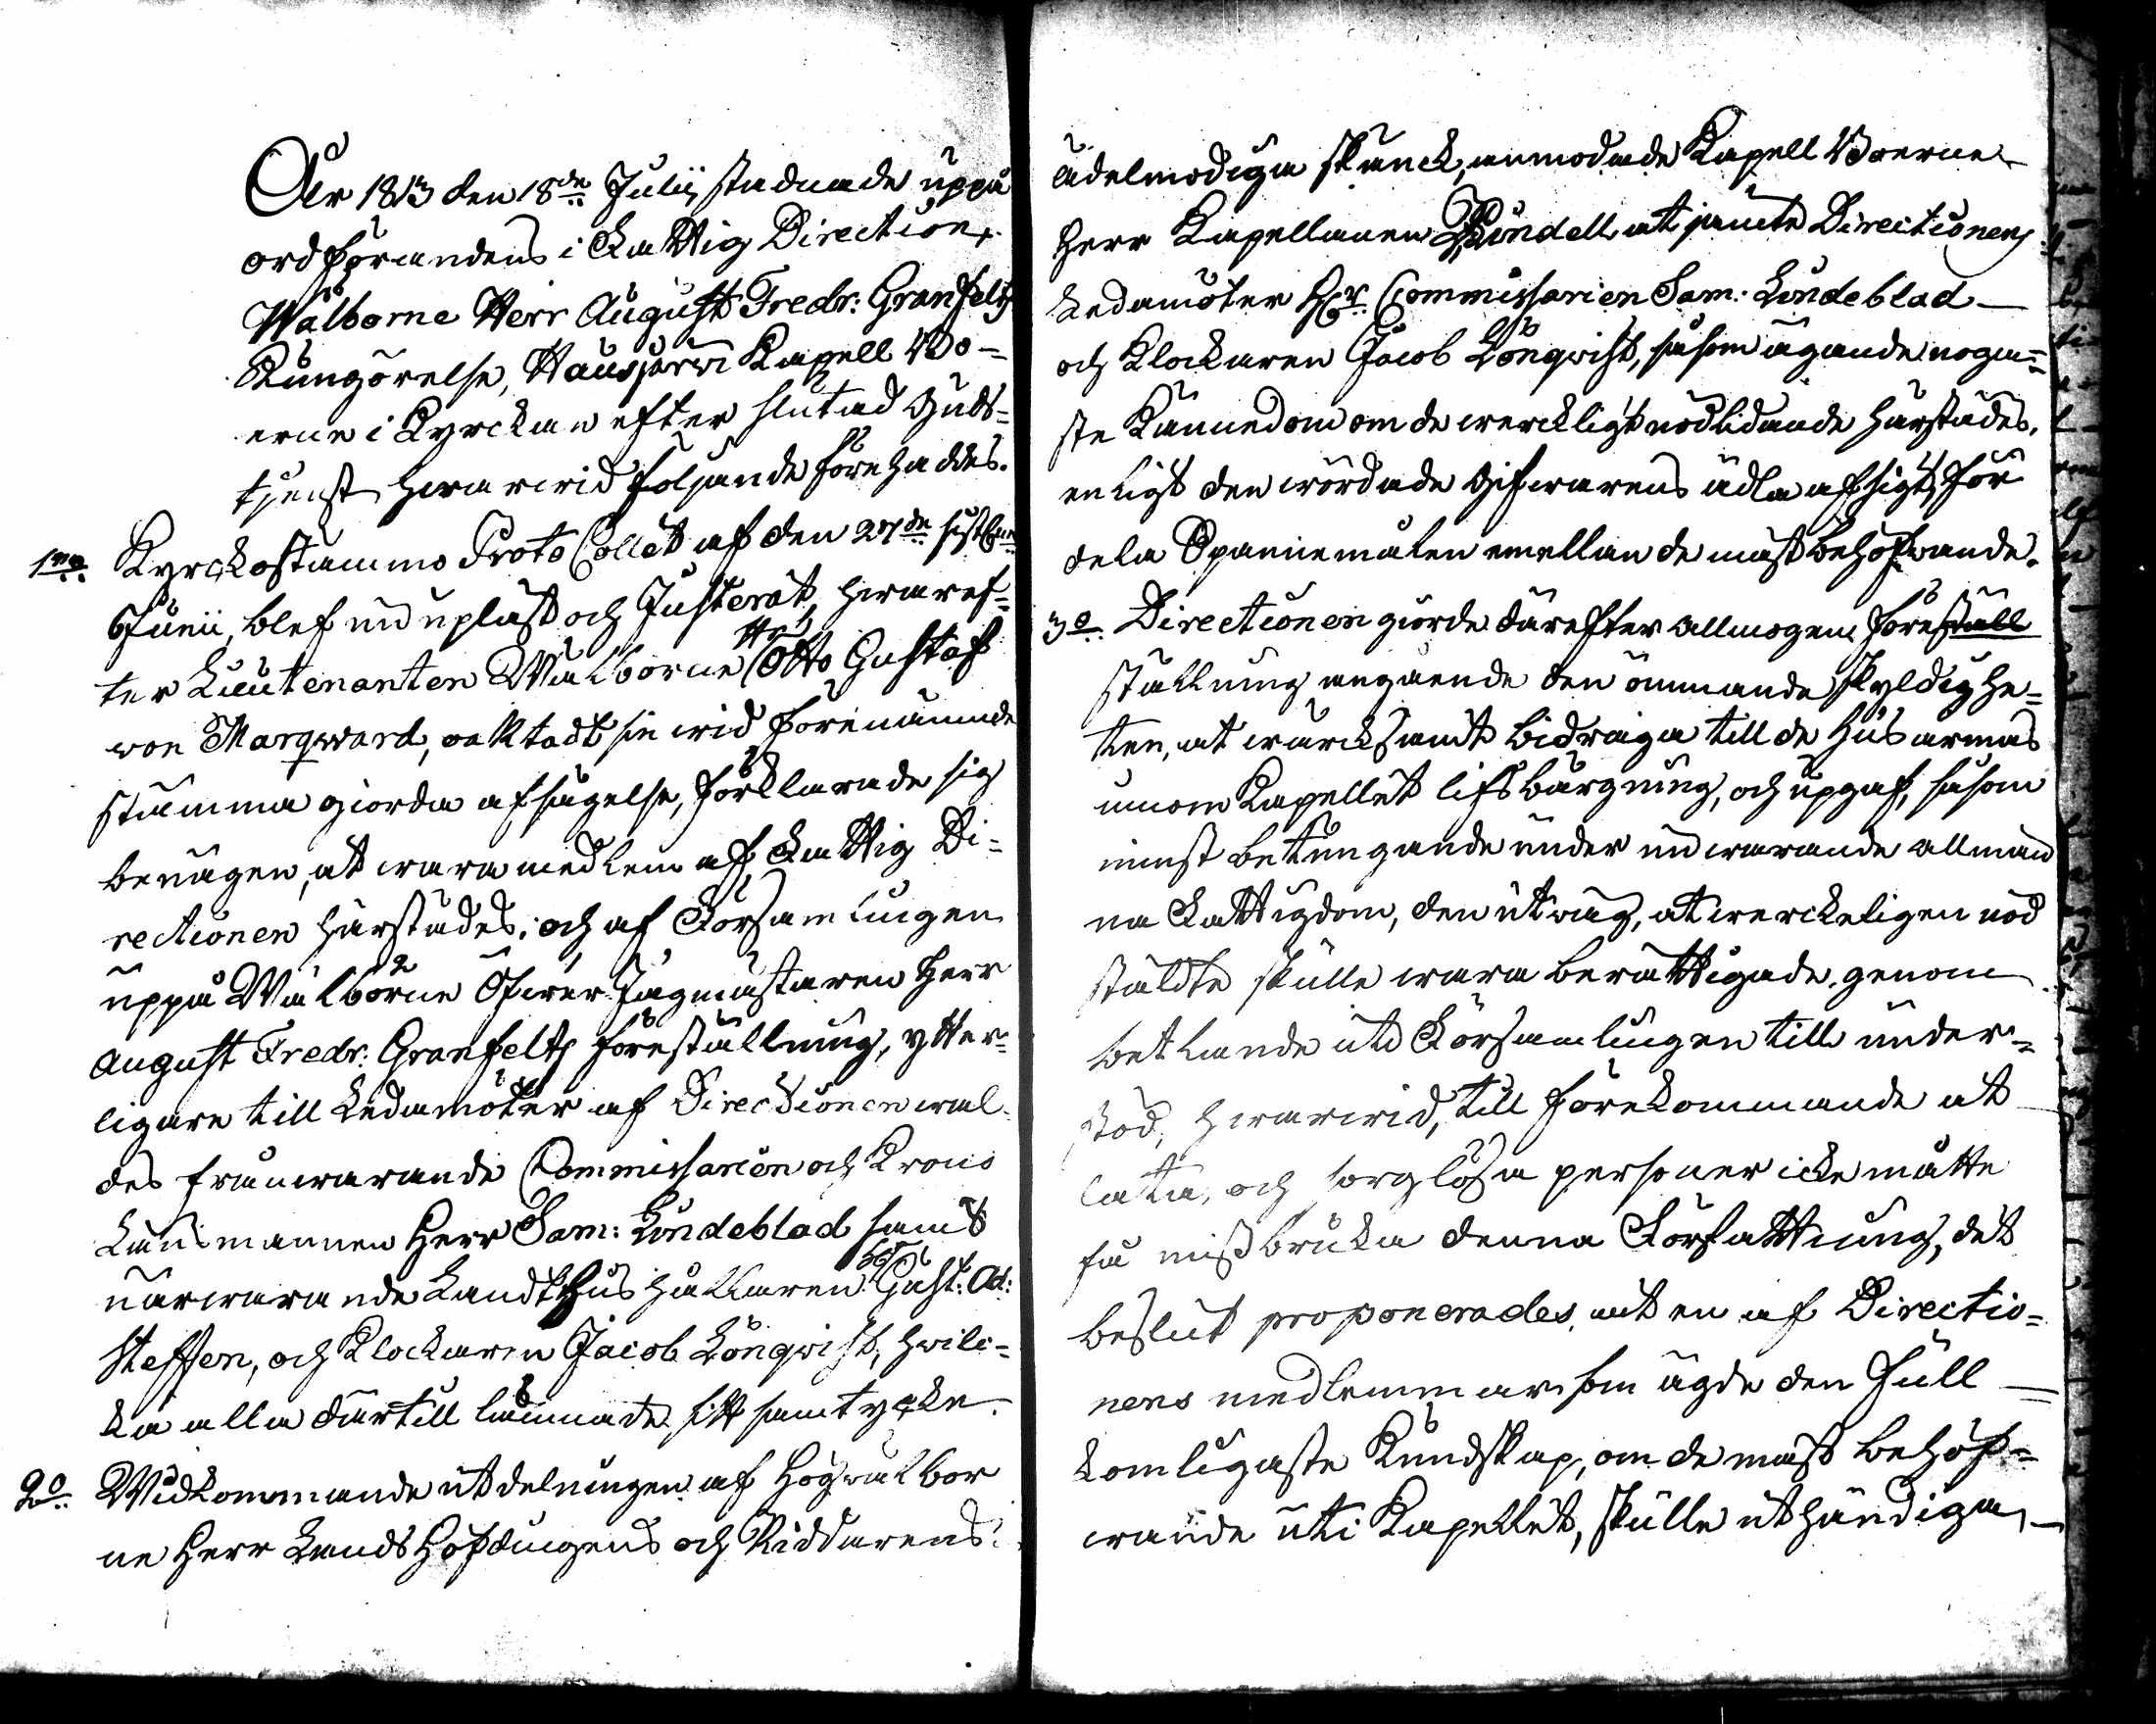 År 1813 den 18de Julii stadnade uppå
ordförandens i Fattig Direction,
Wälborne Herr August Fredr: Granfelts
Kungörelse, Hausjärwi Kapell Bo-
erne i Kyrckan efter slutad Guds-
tjenst, hwarwid följande förehaddes.
1mo Kyrckostämmo Protocollet af den 27de sistl.
Junii, blef nu upläst och Justerat, hwaref-
ter Lieutenanten Wälborne Hr Otto Gustaf
von Marqvard, oaktadt sin wid förenämnde
stämma giorda afsägelse, förklarade sig
benägen, at wara medlem af Fattig Di-
rectionen härstädes: och af Församlingen
uppå Wälborne Öfwer Jägmästaren Herr
August Fredr: Granfelts föreställning, ytter-
ligare till Ledamöter af Directionen wal-
des frånwarande Commissarien och Krono
Länsmannen Herr Sam: Lundeblad samt
närwarande Landthushållaren Hr Gust: Ad:
Steffen, och Klockaren Jacob Lönqvist, hwil-
ka alla därtill lämnade sitt samtycke.
2o Widkommande utdelningen af Högwälbor
ne Herr Lands Höfdingens och Riddarens
ädelmodiga skänck, anmodade Kapell Boerne
Herr Kapellanen Bundell, at jämte Directionens
Ledamöter Hr Commissarien Sam: Lundeblad
och Klockaren Jacob Lönqvist, såsom ägande noga-
ste Kännedom om de werckligt nödlidande härstädes,
enligt den wördade Gifwarens ädla afsigt, för
dela Spannemålen emellan de mäst behöfwande.
3o Directionen giorde därefter Allmogen föreställ
ställning angående den ömmande skyldighe-
ten, at wercksamt bidraga till de husarmas
innom Kapellet lifsbärgning, och upgaf, såsom
minst betungande under nu warande allmän
na Fattigdom, den utwäg, at werckeligen nöd
stäldte skulle wara berättigade genom
betlande uti Församlingen till under-
stöd, hwarwid, till förekommande at
lata, och sorglösa personer icke måtte
få missbruka denna Författning, det
beslut proponerades, at en af Directio-
nens medlemmar som ägde den full
komligaste Kundskap, om de mäst behöf-
wande uti Kapellet, skulle uthändiga